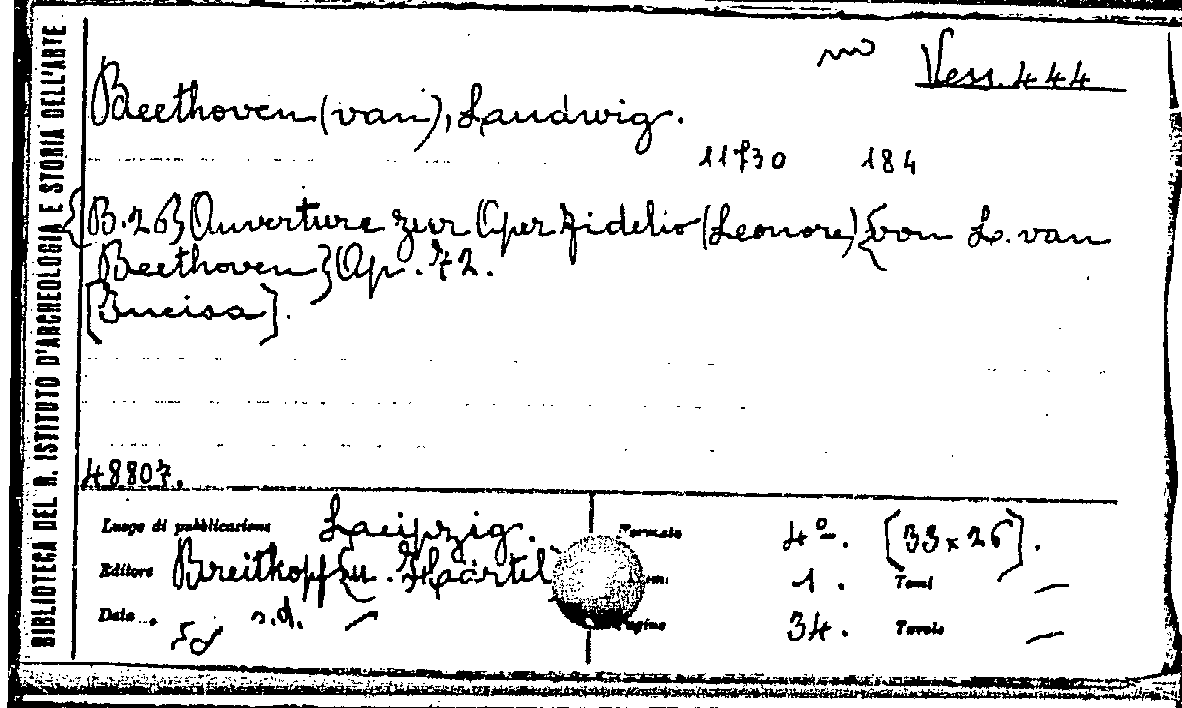 BIBLIOTECA DEL R. ISTITUTO D'ARCHEOLOGIA E STORIA DELL'ARTE
Vess. 444
Beethoven (van), Ludwig.
11730 184
{B. 26} Ouverture zur Oper Fidelio (Leonore) {von L. van
Beethoven} Op. 72.
[Incisa].
48807.
Luogo di pubblicazione Leipzig. Formato 4º. [33 x 26].
Editore Breitkopf u. Härtel 1. Tomi —
Data s.d. — Pagine 34. Tavole —